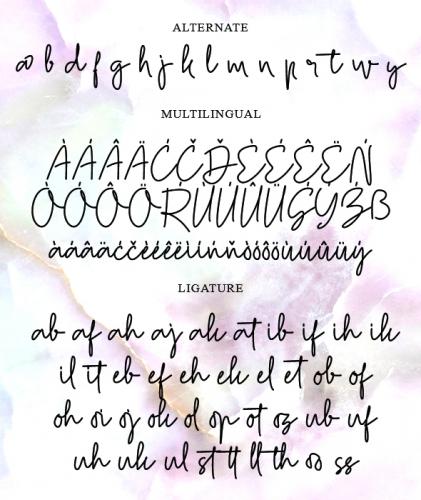 ALTERNATE
a b d f g h j k l m n p r t w y
MULTILINGUAL
ÀÁÂÄĆČĎÈÉÊËŃ
ÒÓÔÖŔÙÚÛÜŚÝŹß
àáâäćčèéêëìíńňòóôöùúûüý
LIGATURE
ab af ah aj ak at ib if ih ik
il it eb ef eh ek el et ob of
oh oi oj ok ol op ot oz ub uf
uh uk ul st tt ll th oo ss